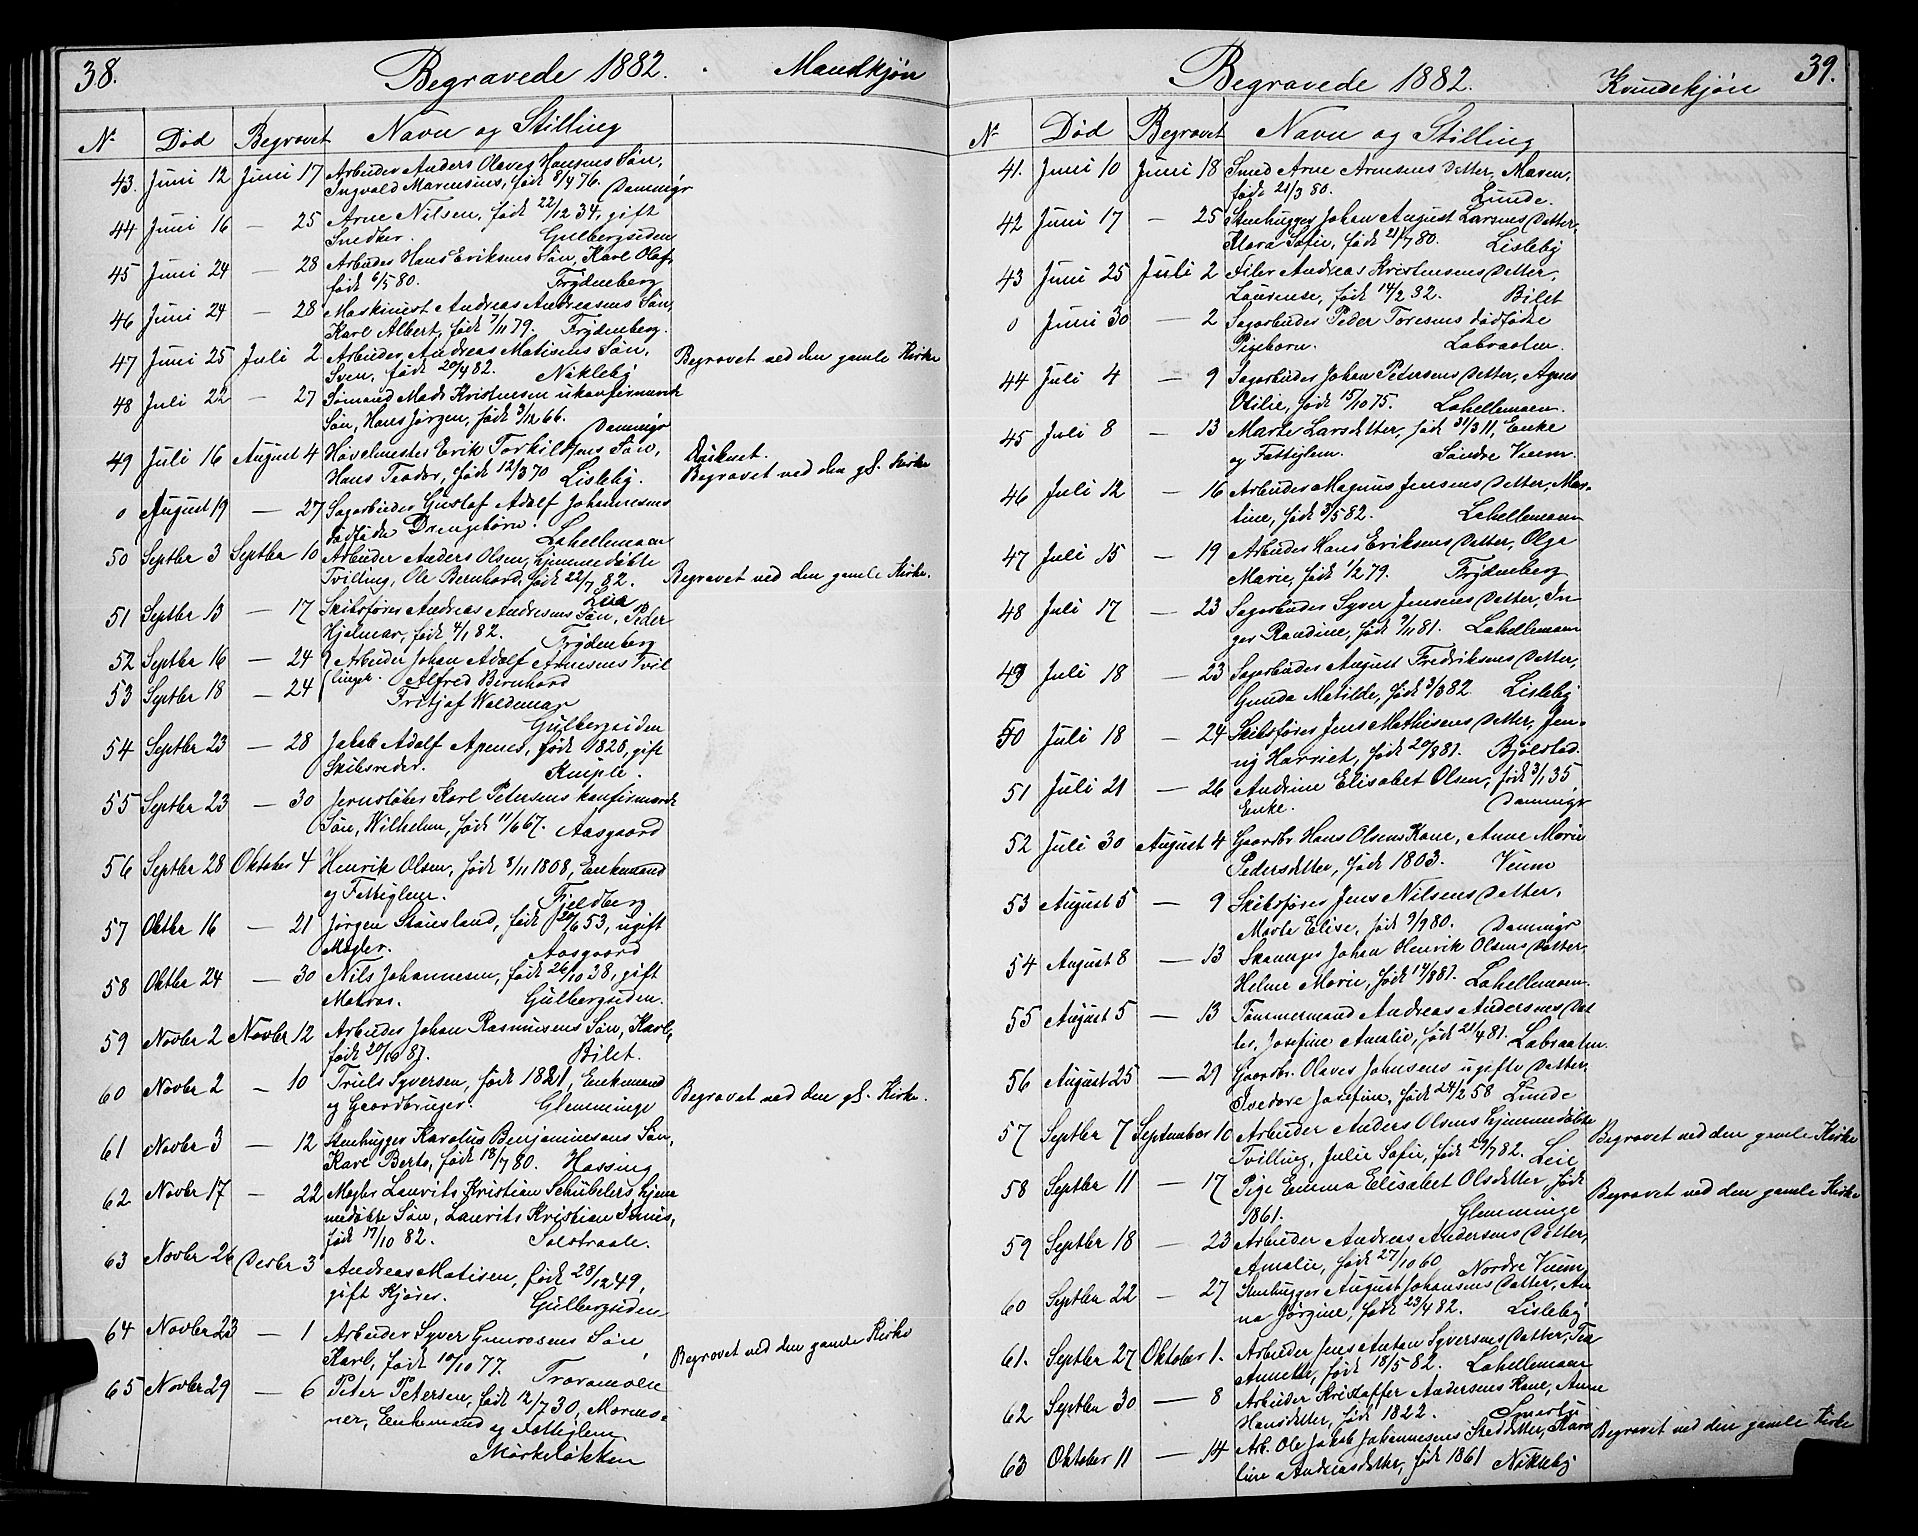 38. Begravede 1882. Mandkjøn
N. Død Begravet Navn og Stilling
43. Juni 12 Juni 17 Arbeider Anders Olaveg Hansens Søn,
Ingvald Marensius, født 8/4 76. Dammyr
44 Juni 16 — 25 Arne Nilsen, født 22/12 34, gift
Snedker. Gulbergsiden
45 Juni 24 — 28 Arbeider Hans Eriksens Søn, Karl Olaf,
født 6/5 80. Frydenberg
46 Juni 24 — 28 Maskinist Andreas Andreasens Søn,
Karl Albert, født 7/11 79. Frydenberg.
47 Juni 25 Juli 2 Arbeider Andreas Matisens Søn, Begravet ved den gamle Kirke
Sven, født 20/4 82. Nikleby
48 Juli 22 — 27 Sømand Mads Kristensen ukonfirmerede
Søn, Hans Jørgen, født 3/12 66. Dammyr
49 Juli 16 August 4 Høvelmester Erik Torkildsens Søn, Druknet.
Hans Teodor, født 12/3 70 Lisleby. Begravet ved den gl. Kirke
0 August 19 — 27 Sagarbeider Gustaf Adolf Johannesens
dødfødte Drengebørn. Lahellemoen
50 Septbr 3 Septbr 10 Arbeider Anders Olsen, hjemmedøbte
Tvilling, Ole Bernhard, født 22/7 82. Begravet ved den gamle Kirke.
Leie
51 Septbr 13 — 17 Skibsfører Andreas Andresens Søn, Peder
Hjalmar, født 4/1 82. Frydenberg
52 Septbr 16 — 24 Arbeider Johan Adolf Arnesens Tvil
53 Septbr 18 — 24 linger. Alfred Bernhard
Fritjof Waldemar
Gulbergsiden
54 Septbr 23 — 28 Jakob Adolf Apenes, født 1828, gift
Skibsreder. Kniple.
55 Septbr 23 — 30 Jernstøber Karl Petersens konfirmerede
Søn, Wilhelm, født 11/6 67. Aasgaard
56 Septbr 28 Oktober 4 Henrik Olsen, født 8/11 1808, Enkemand
og Fattiglem. Fjeldberg
57 Oktbr 16 — 21 Jørgen Stausland, født 20/6 53, ugift
Mægler. Aasgaard
58 Oktbr 24 — 30 Nils Johannesen, født 26/10 38, gift
Matros. Gulbergsiden.
59 Novbr 2 Novbr 12 Arbeider Johan Rasmusens Søn, Karl,
født 20/10 81. Bilet.
60 Novbr 2 — 10 Truls Syversen, født 1821, Enkemand
og Gaardbruger. Glemminge Begravet ved den gl. Kirke.
61 Novbr 3 — 12 Stenhugger Karolus Benjaminsons Søn,
Karl Berto, født 18/7 80. Hassing
62 Novbr 17 — 22 Mægler Laurits Kristian Schübelers hjem
medøbte Søn, Laurits Kristian
født 17/10 82. Solstraale.
63 Novbr 26 Desbr 3 Andreas Matisen, født 28/12 49,
gift Kjører. Gulbergsiden
64 Novbr 23 — 1 Arbeider Syver Gunrosens Søn,
Karl, født 10/10 77. Traramoen Begravet ved den gamle Kirke
65 Novbr 29 — 6 Peter Petersen, født 12/7 30,
Enkemand og Fattiglem.
Mørkeløkken
Begravede 1882. Kvindekjøn 39.
N. Død Begravet Navn og Stilling
41. Juni 10 Juni 18 Smed Arne Arnesens Datter, Maren,
født 21/3 80. Lunde.
42 Juni 17 — 25 Stenhugger Johan August Larsens Datter,
Klara Sofie, født 21/7 80. Lisleby
43 Juni 25 Juli 2 Filer Andreas Kristensens Datter,
Laurense, født 14/2 32. Bilet
0 Juni 30 — 2 Sagarbeider Peder Toresens dødfødte
Pigebarn. Labraaten.
44 Juli 4 — 9 Sagarbeider Johan Petersens Datter, Agnes
Otilie, født 15/10 75. Lahellemoen.
45 Juli 8 — 13 Marte Larsdatter, født 31/3 11, Enke
og Fattiglem. Søndre Veum.
46 Juli 12 — 16 Arbeider Magnus Jensens Datter, Mar-
tine, født 3/5 82. Lahellemoen
47 Juli 15 — 19 Arbeider Hans Eriksens Datter, Olga
Marie, født 1/2 79. Frydenberg
48 Juli 17 — 23 Sagarbeider Syver Jensens Datter, In-
ger Randine, født 9/11 81. Lahellemoen
49 Juli 18 — 23 Sagarbeider August Fredriksens Datter,
Gunda Matilde, født 3/3 82. Lisleby
50 Juli 18 — 24 Skibsfører Jens Mathisens Datter, Jen-
ny Harriet, født 20/8 81. Bjølstad.
51 Juli 21 — 26 Andrine Elisabet Olsen, født 3/1 35,
Enke. Dammyr
52 Juli 30 August 4 Gaardbr. Hans Olsens Kone, Anne Marie
Pedersdatter, født 1803. Veum
53 August 5 — 9 Skibsfører Jens Nilsens Datter,
Marta Elise, født 9/9 80. Dammyr
54 August 8 — 13 Skomager Johan Henrik Olsens Datter,
Helene Marie, født 14/8 81. Lahellemoen.
55 August 5 — 13 Tømmermand Andreas Andersens Dat
ter, Josefine Amalie, født 21/4 81. Labraaten.
56 August 25 — 29 Gaardbr. Olaves Johnsens ugifte Datter,
Isedore Josefine, født 24/2 58 Lunde
57 Septbr 7 September 10 Arbeider Anders Olsens hjemmedøbte
Tvilling, Julie Sofie, født 22/7 82. Leie Begravet ved den gamle Kirke
58 Septbr 11 — 17 Pige Emma Elisabet Olsdatter, født
1861. Glemminge Begravet ved den gamle Kirke
59 Septbr 18 — 23 Arbeider Andreas Andersens Datter,
Amalie, født 27/10 60 Nordre Veum
60 Septbr 22 — 27 Stenhugger August Johansens Datter, An
na Jørgine, født 23/4 82. Lisleby
61. Septbr 27 Oktober 1. Arbeider Jens Anton Syversens Datter, Tea
Annette, født 18/5 82. Lahellemoen
62 Septbr 30 — 8 Arbeider Kristoffer Andersens Kone, Anne
Hansdatter, født 1822. Smertu
63 Oktober 11 — 14 Arb. Ole Jakob Johannesens Steddatter, Karo
line Andreasdatter, født 1861 Nikleby Begravet ved den gamle Kirke